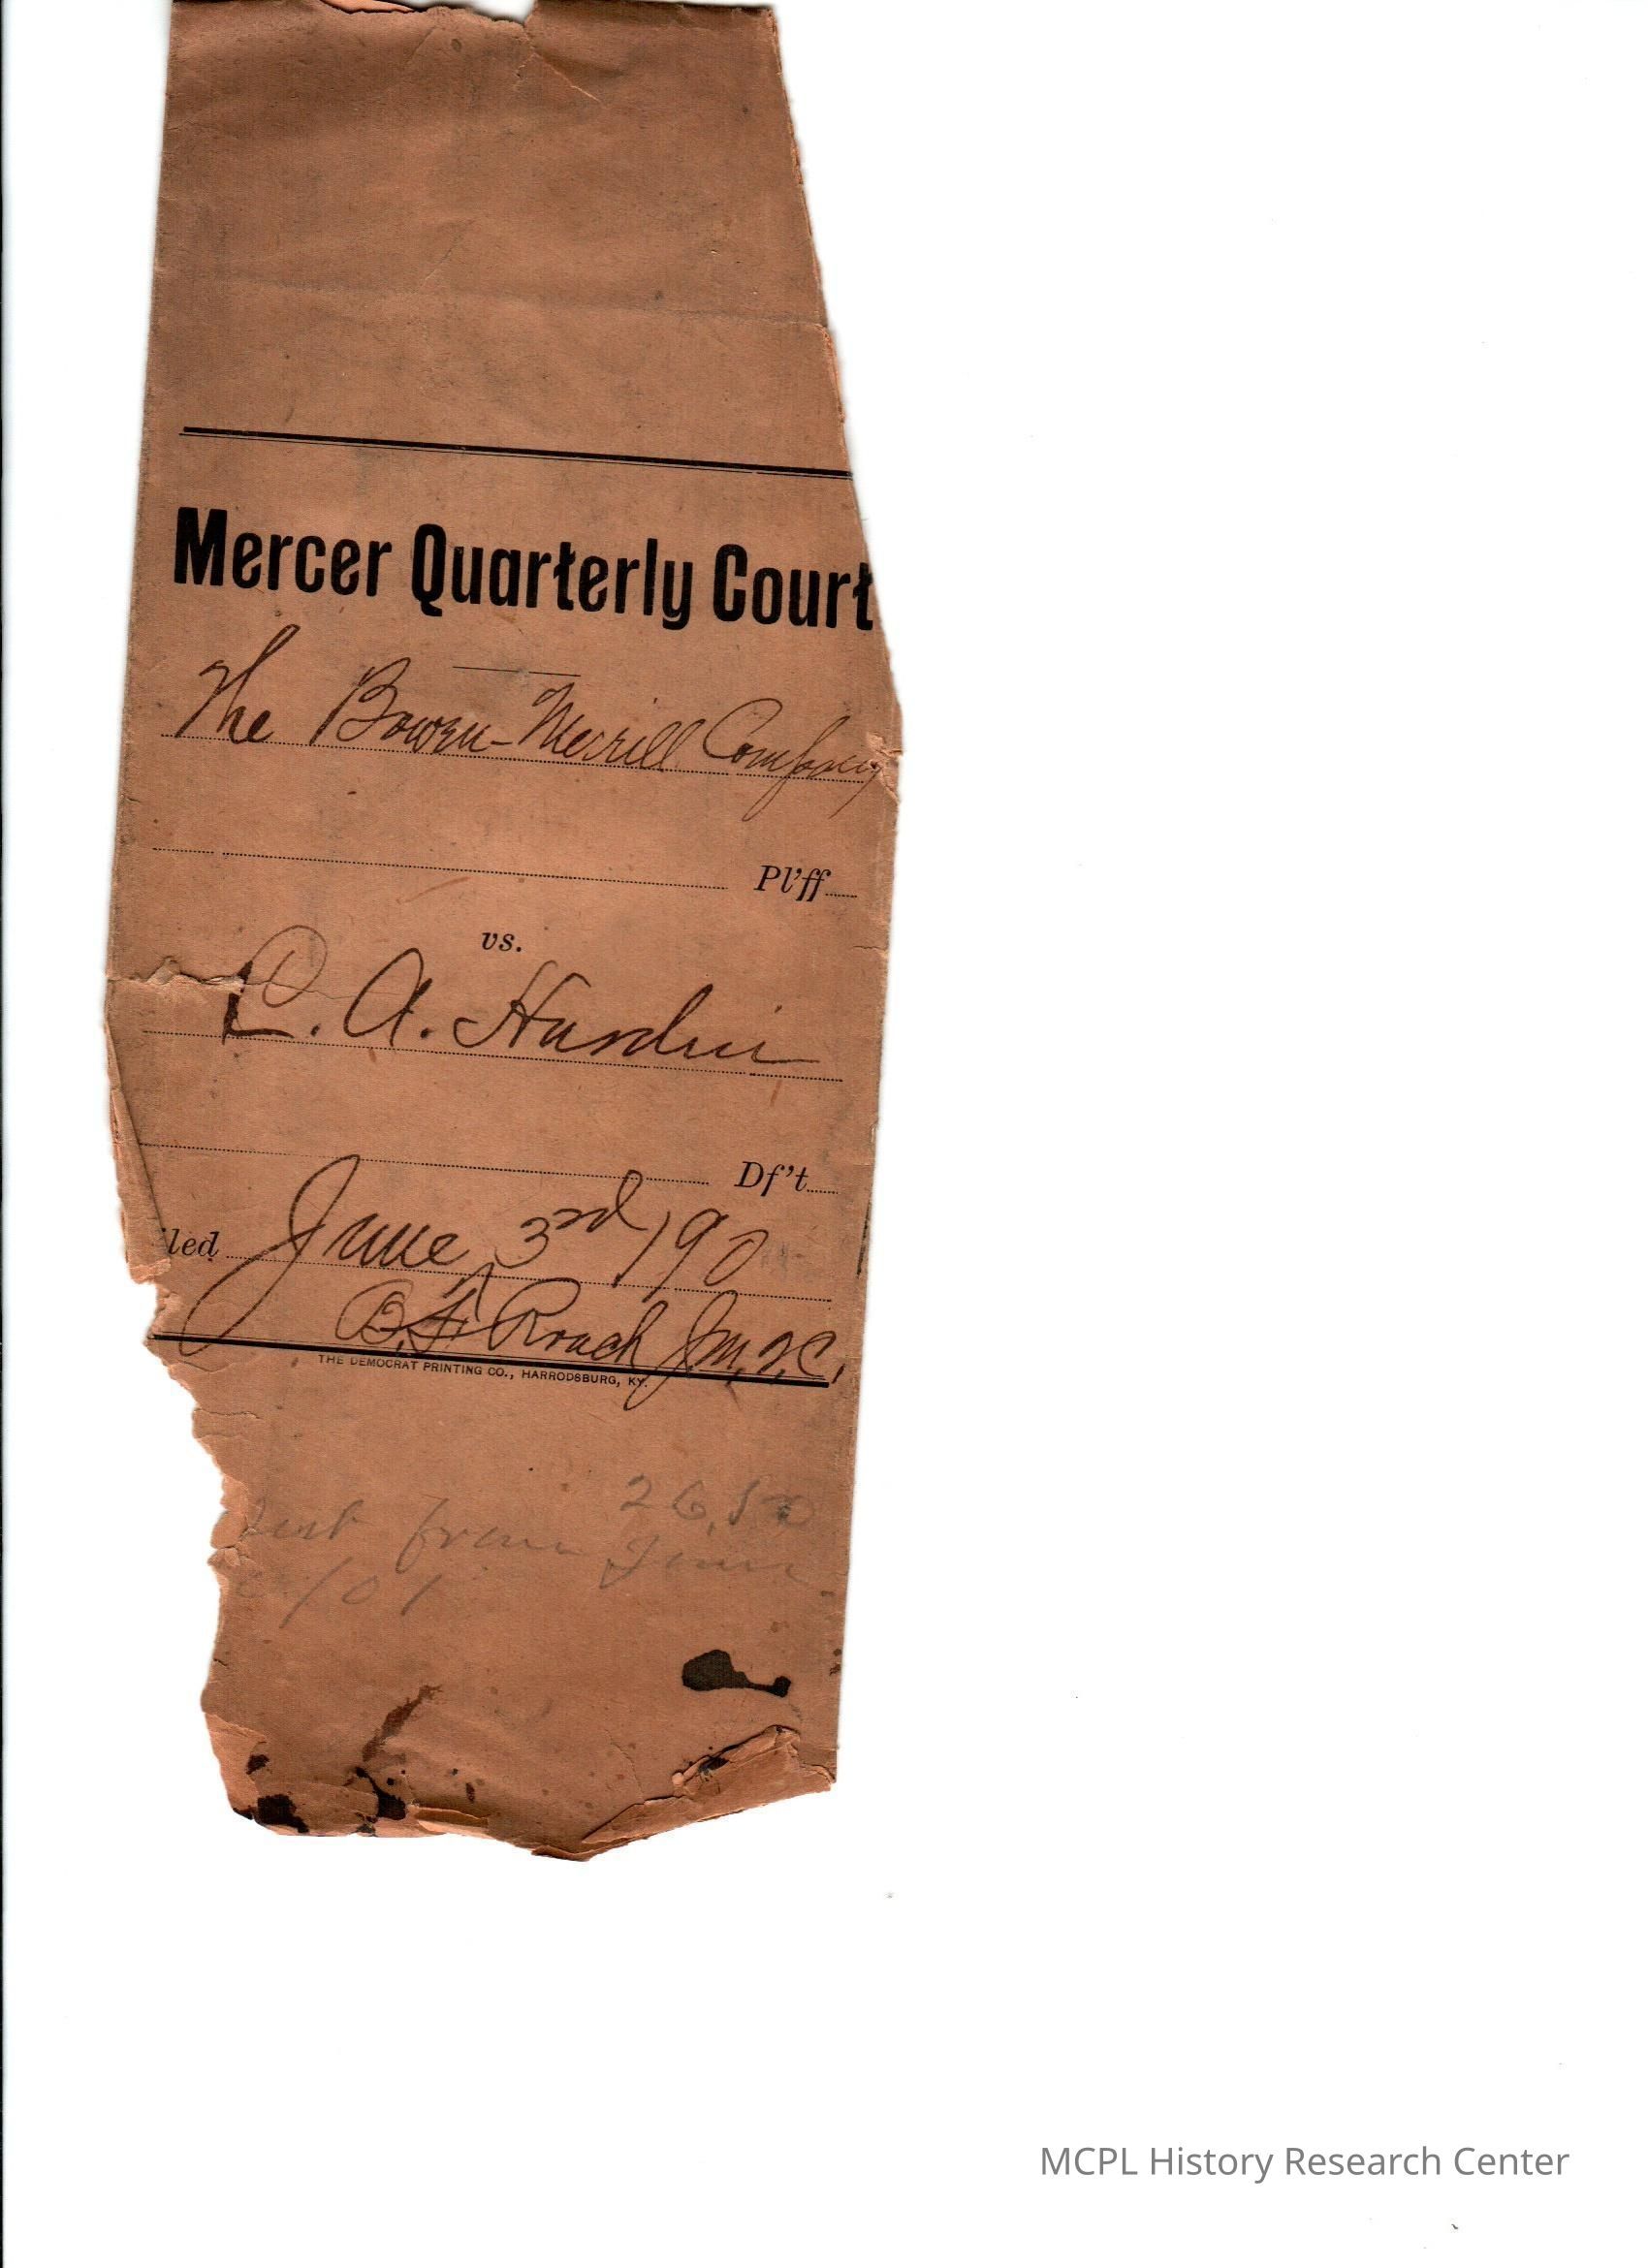 Mercer Quarterly Court
The Bowen-Merrill Company
Pl'ff
vs.
C. A. Hardin
Df't
iled June 3rd 190
B. F. Roach J.M.Q.C.
THE DEMOCRAT PRINTING CO., HARRODSBURG, KY.
26.50
from June
MCPL History Research Center